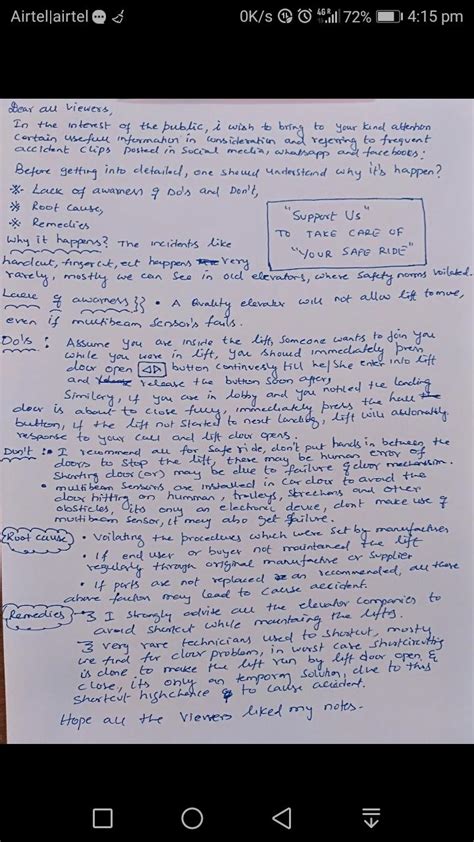 Airtel|airtel 0K/s 4G R 72% 4:15 pm
Dear all Viewers,
In the interest of the public, i wish to bring to your kind attention
certain usefull information in consideration and refering to frequent
accident clips posted in social media, whatsapp and facebooks:
Before getting into detailed, one should understand why it's happen?
※ Lack of awarness of Do's and Don't,
※ Root cause,
※ Remedies
"Support Us"
TO TAKE CARE OF
"YOUR SAFE RIDE"
Why it happens? The incidents like
handcut, fingercut, ect happens very
rarely, mostly we can see in old elevators, where safety norms voilated.
Lacue of awarness}} • A Quality elevator will not allow lift to move,
even if multibeam sensor's fails.
Do's : Assume you are inside the lift, someone wants to join you
while you were in lift, you should immediately press
door open ◁|▷ button continuesly till he/she enter into lift
and release the button soon after,
Similary, if you are in lobby and you noticed the landing
door is about to close fully, immediately press the hall
button, if the lift not started to next landing, lift will automatically
response to your call and lift door opens.
Don't : • I recommend all for safe ride, don't put hands in between the
doors to stop the lift, there may be human error of
shorting door (or) may be due to failure of door mechanism.
• multibeam sensors are installed in car door to avoid the
door hitting on humman, trolleys, strechers and other
obsticles, its only an electronic device, dont make use of
multibeam sensor, it may also get failure.
Root cause • Voilating the procedures which were set by manufactures
• If end user or buyer not maintained the lift
regularly through original manufacture or supplier
• If parts are not replaced as an recommended, all these
above factors may lead to cause accident.
Remedies → 3 I strongly advise all the elevator companies to
avoid shortcut while maintaining the lifts.
3 very rare technicians used to shortcut, mosty
we find for door problem, in worst case shortcircuiting
is done to make the lift run by lift door open &
close, its only an temporory solution, due to this
shortcut highchance of to cause accident.
Hope all the viewers liked my notes.